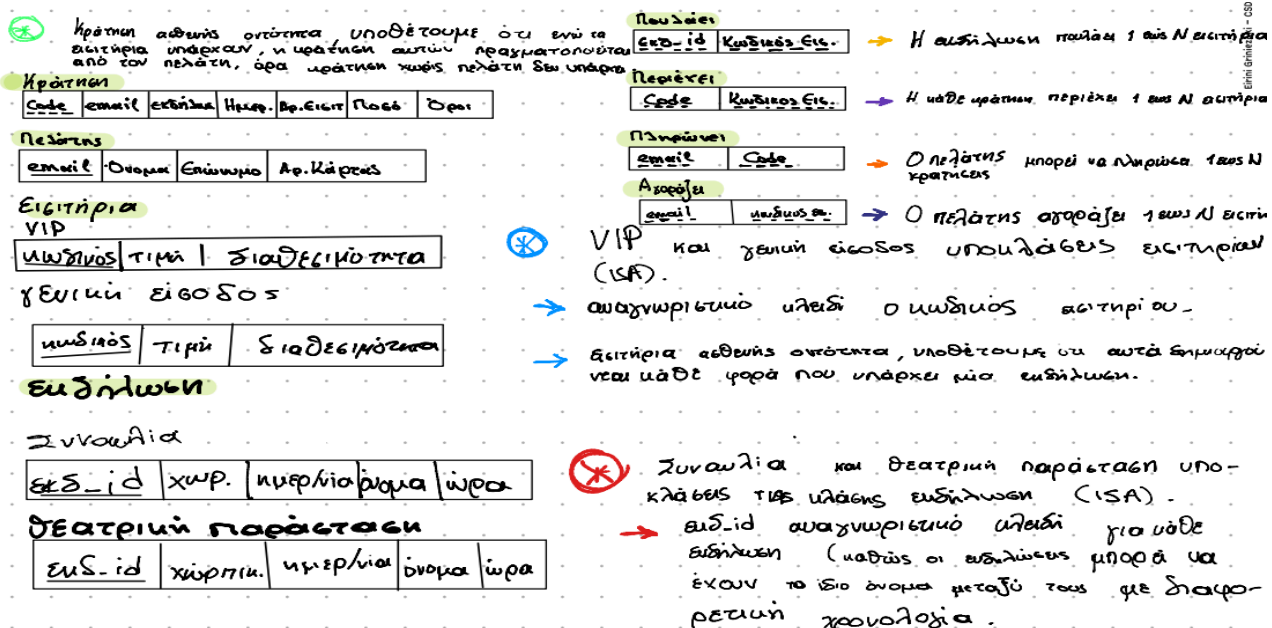 Κράτηση ασθενής οντότητα, υποθέτουμε ότι ενώ τα
εισιτήρια υπάρχουν, η κράτηση αυτών πραγματοποιείται
από τον πελάτη, άρα κράτηση χωρίς πελάτη δεν υπάρχει
Κράτηση
Code email εκδήλωση Ημερ. Αρ.Εισιτ Ποσό Όροι
Πελάτης
email Όνομα Επώνυμο Αρ.Κάρτας
Εισιτήρια
VIP
κωδικός τιμή διαθεσιμότητα
γενική είσοδος
κωδικός τιμή διαθεσιμότητα
εκδήλωση
Συναυλία
εκδ_id χωρ. ημερ/νία όνομα ώρα
θεατρική παράσταση
εκδ_id χωρητικ. ημερ/νία όνομα ώρα
Πουλάει
εκδ_id Κωδικός Εις.
Η εκδήλωση πουλάει 1 εώς N εισιτήρια
Περιέχει
Code Κωδικος Εις.
Η κάθε κράτηση περιέχει 1 εως N εισιτήρια
Πληρώνει
email Code
Ο πελάτης μπορεί να πληρώσει 1εως N
κρατησεις
Αγοράζει
email κωδικος εις.
Ο πελάτης αγοράζει 1 εως N εισιτή
VIP και γενική είσοδος υποκλάσεις εισιτηρίων
(ISA).
αναγνωριστικό κλειδί ο κωδικός εισιτηρίου.
Εισιτήρια ασθενής οντότητα, υποθέτουμε οτι αυτά δημιουργού
νται κάθε φορά που υπάρχει μία εκδήλωση.
Συναυλία και θεατρική παράσταση υπο-
κλάσεις της κλάσης εκδήλωση (ISA).
εκδ_id αναγνωριστικό κλειδί για κάθε
εκδήλωση (καθώς οι εκδηλώσεις μπορεί να
έχουν το ίδιο όνομα μεταξύ τους με διαφο-
ρετική χρονολογία.